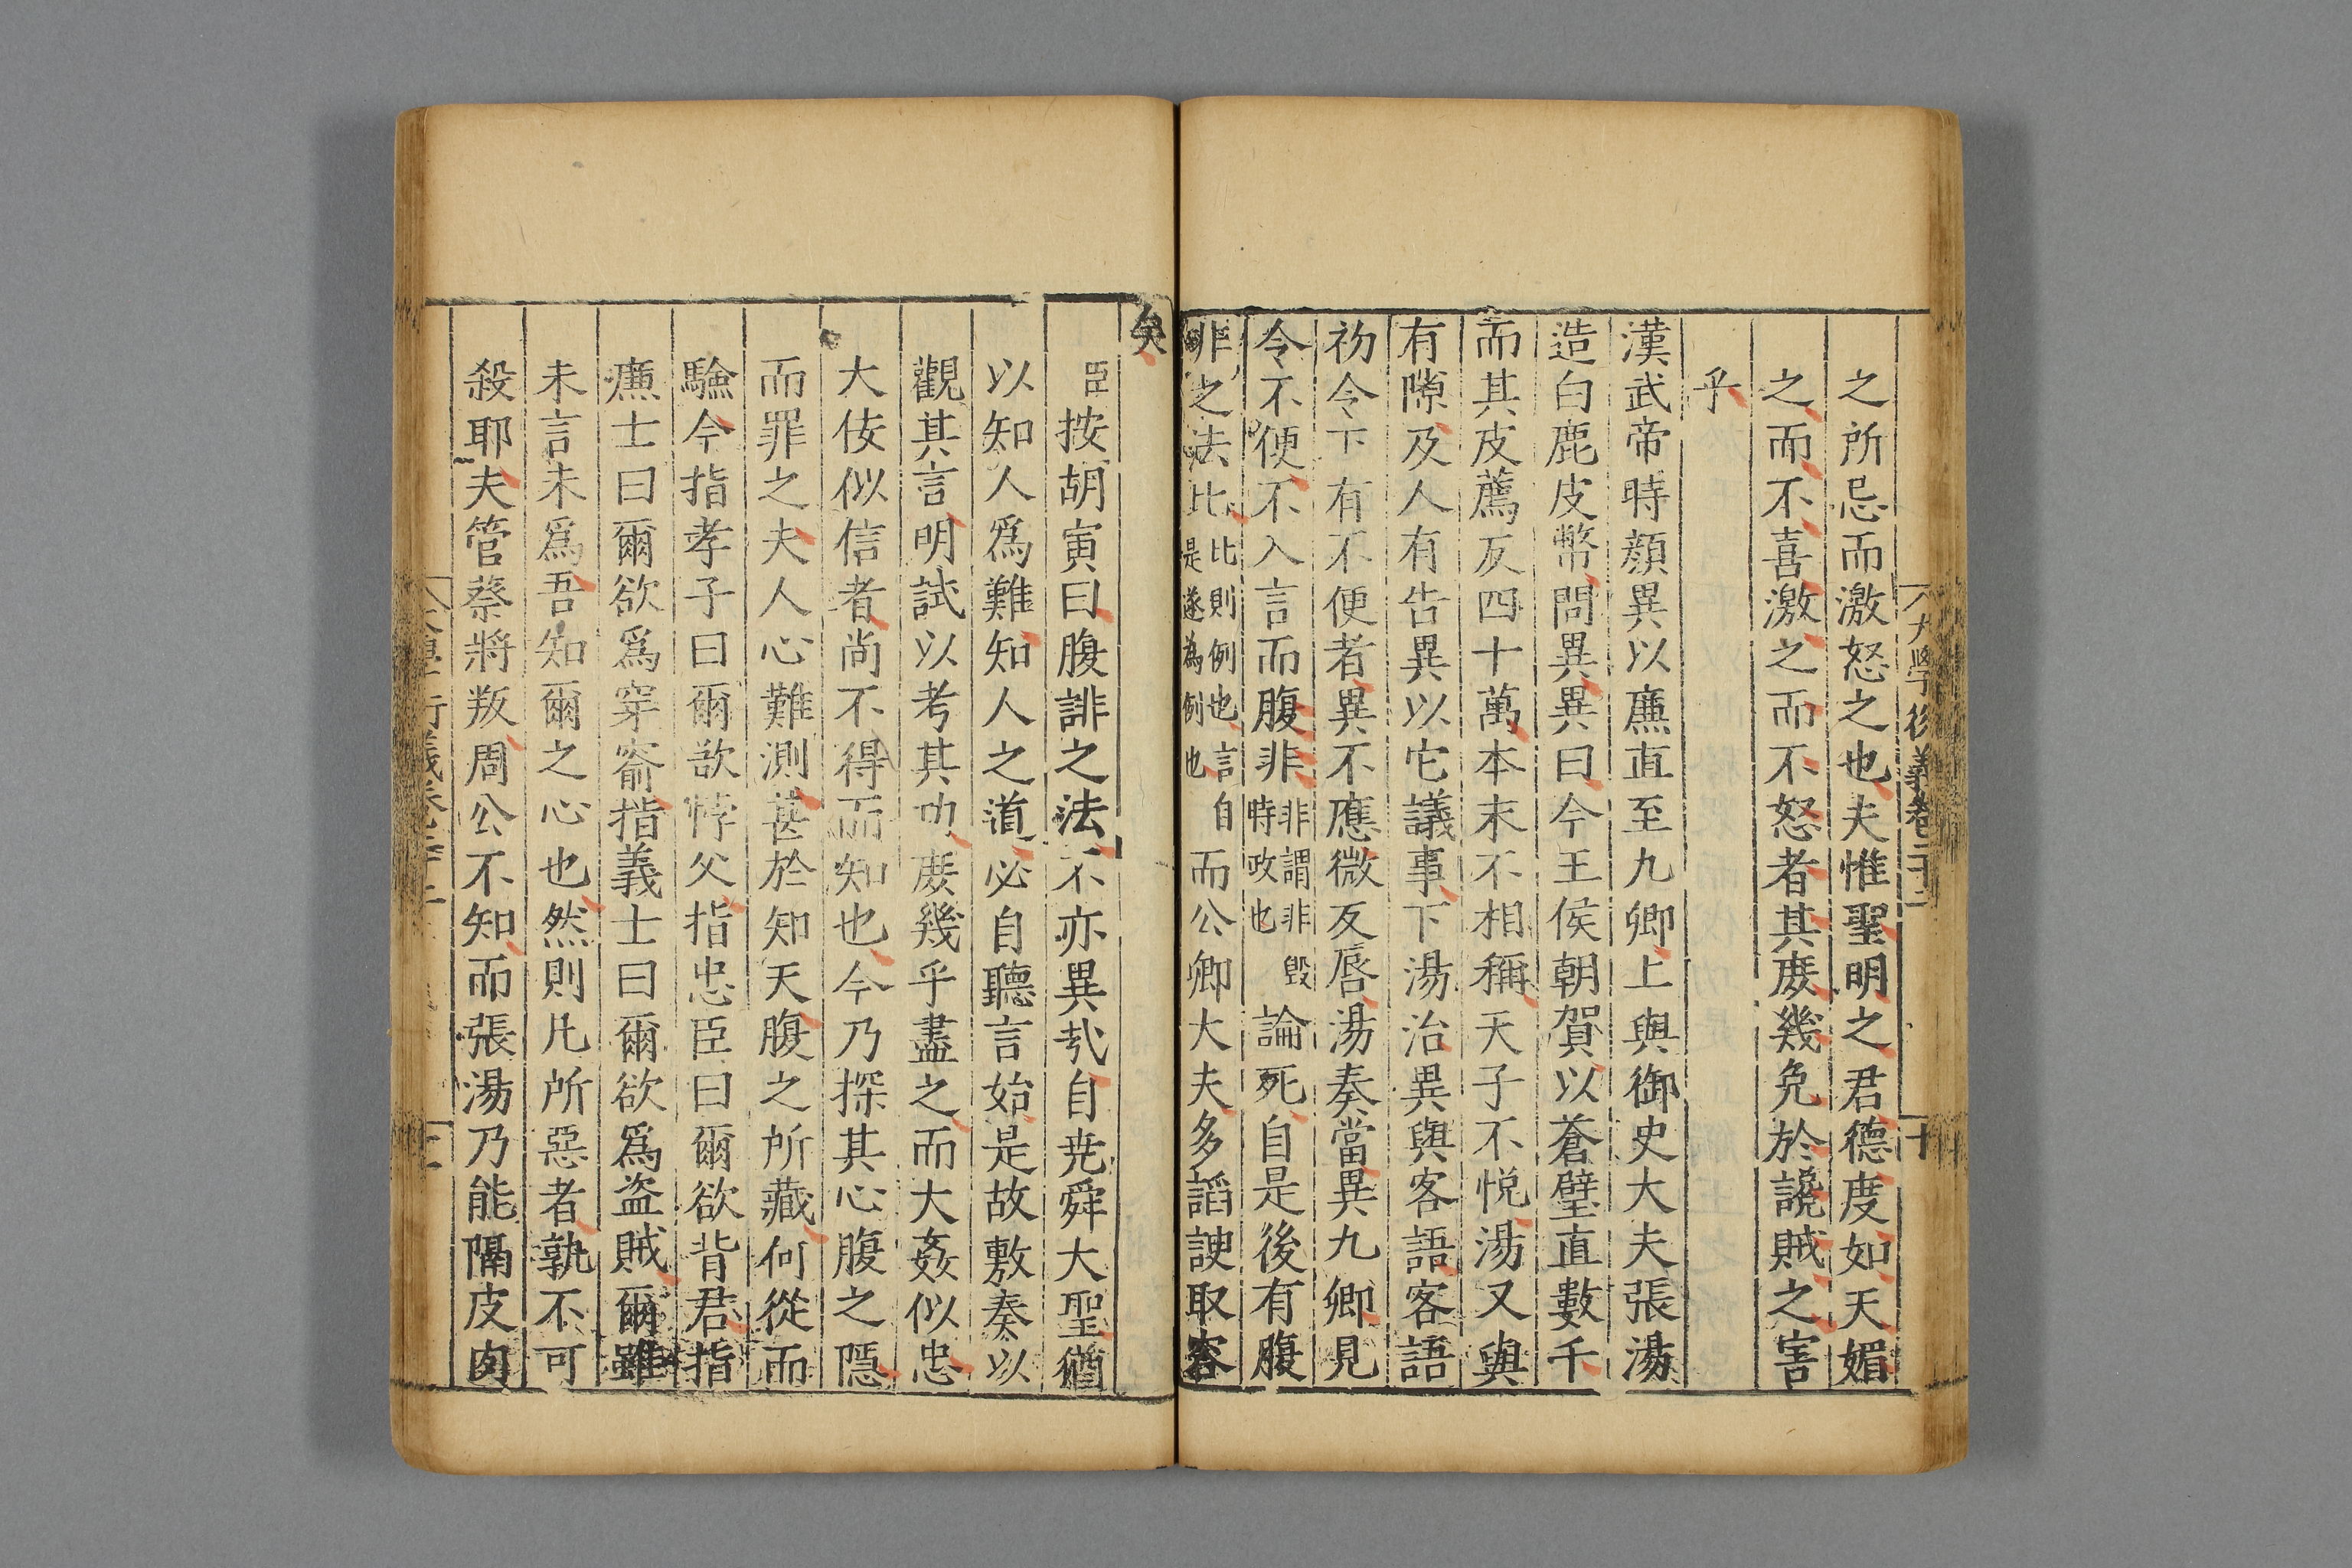 之所忌而激怒之也夫惟聖明之君德度如天媚
之而不喜激之而不怒者其庶幾免於讒賊之害
乎
漢武帝時顔異以廉直至九卿上與御史大夫張湯
造白鹿皮幣問異異曰今王侯朝賀以蒼璧直數千
而其皮薦反四十萬本末不相稱天子不悦湯又與
有隙及人有告異以它議事下湯治異與客語客語
初令下有不便者異不應微反唇湯奏當異九卿見
令不便不入言而腹非非謂非毀時政也論死自是後有腹
非之法比比則例也言自是遂為例也而公卿大夫多謟諛取容
矣
臣按胡寅曰腹誹之法不亦異哉自尭舜大聖猶
以知人爲難知人之道必自聽言始是故敷奏以
觀其言明試以考其功庶幾乎盡之而大姦似忠
大佞似信者尚不得而知也今乃探其心腹之隱
而罪之夫人心難測甚於知天腹之所藏何從而
驗今指孝子曰爾欲悖父指忠臣曰爾欲背君指
廉士曰爾欲爲穿窬指義士曰爾欲爲盗賊爾雖
未言未爲吾知爾之心也然則凡所惡者孰不可
殺耶夫管蔡將叛周公不知而張湯乃能隔皮肉